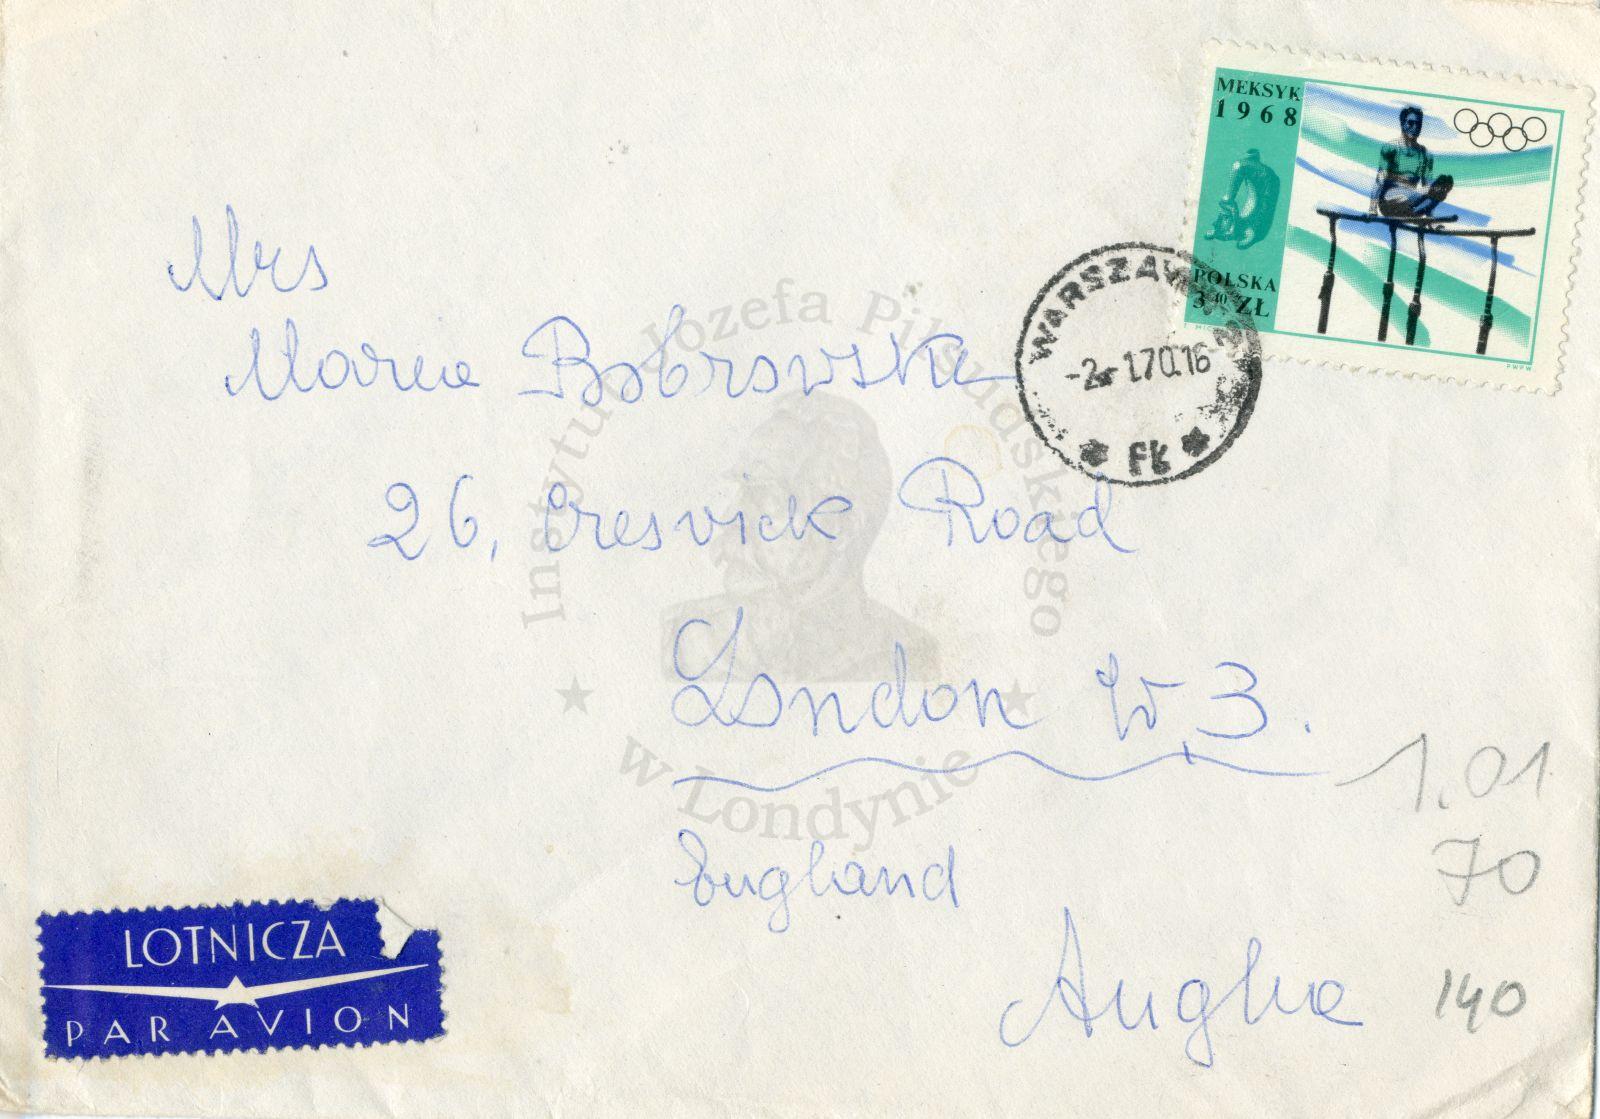 MEKSYK
1968
POLSKA
3 40 ZŁ
PWPW
WARSZAWA
-2.-1.70.16
* FŁ *
Mrs
Maria Bobrowska
26, Creswick Road
London W.3.
England
Anglia
1.01
70
140
LOTNICZA
PAR AVION
Instytut Józefa Piłsudskiego
w Londynie